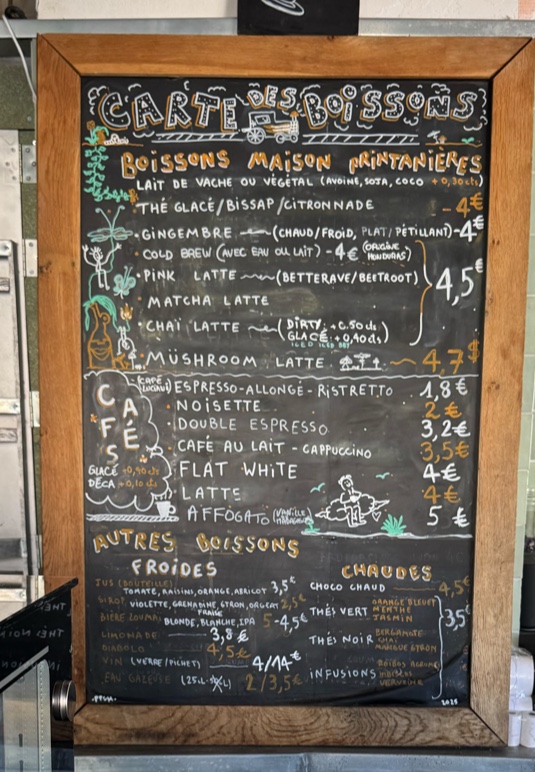 CARTE DES BOISSONS
BOISSONS MAISON PRINTANIÈRES
LAIT DE VACHE OU VÉGÉTAL (AVOINE, SOJA, COCO + 0,30cts)
THÉ GLACÉ/BISSAP/CITRONNADE - 4€
GINGEMBRE (CHAUD/FROID, PLAT/PÉTILLANT) - 4€
COLD BREW (AVEC EAU OU LAIT) - 4€ (ORIGINE HONDURAS)
PINK LATTE (BETTERAVE/BEETROOT) 4,5€
MATCHA LATTE
CHAÏ LATTE (DIRTY: +0.50cts
GLACÉ: +0,40cts)
MÜSHROOM LATTE 4,7$
CAFÉS
GLACÉ +0,40cts
DÉCA +0,10cts
ESPRESSO-ALLONGÉ-RISTRETTO 1,8€
NOISETTE 2€
DOUBLE ESPRESSO 3,2€
CAFÉ AU LAIT - CAPPUCCINO 3,5€
FLAT WHITE 4€
LATTE 4€
AFFOGATO (VANILLE 5€
AUTRES BOISSONS
FROIDES
JUS (BOUTEILLE)
TOMATE, RAISINS, ORANGE, ABRICOT 3,5€
SIROP VIOLETTE, GRENADINE, CITRON, ORGEAT 2,5€
FRAISE
BIÈRE
BLONDE, BLANCHE, IPA 5-4,5€
LIMONADE 3,8€
DIABOLO 4,5€
VIN (VERRE/PICHET) 4/14€
EAU GAZEUSE 2/3,5€
CHAUDES
CHOCO CHAUD 4,5€
THÉS VERT ORANGE BLEUET
MENTHE
JASMIN
3,5€
THÉS NOIR BERGAMOTE
CHAÏ
MANGUE CITRON
INFUSIONS
HIBISCUS
VERVEINE
2025